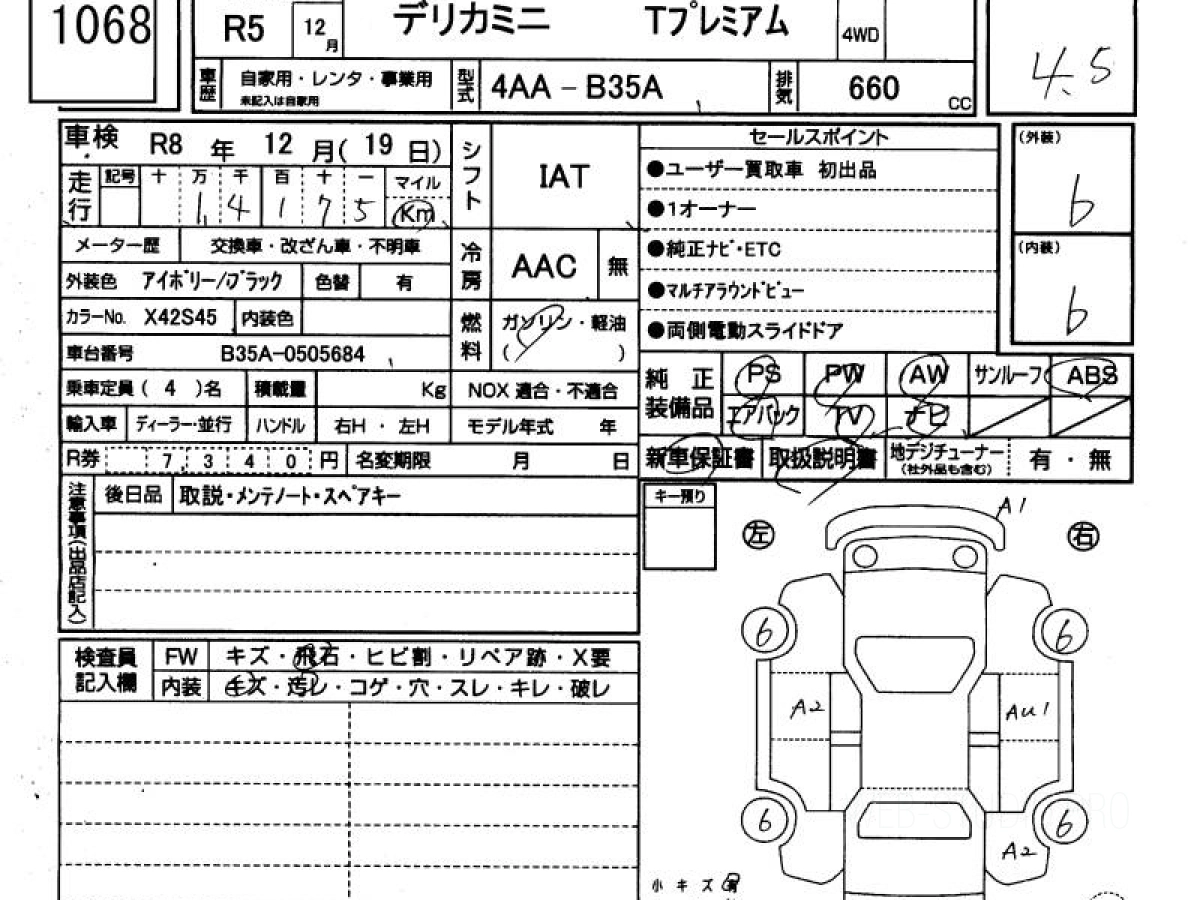 1068
R5 12月 デリカミニ Tプレミアム 4WD
車歴 自家用・レンタ・事業用 未記入は自家用 型式 4AA－B35A 排気 660 CC
4.5
車検 R8 年 12 月( 19 日)
走行 記号 十 万 千 百 十 一 マイル
1,4175 Km
シフト IAT
メーター歴 交換車・改ざん車・不明車
冷房 AAC 無
外装色 アイボリー/ブラック 色替 有
カラーNo. X42S45 内装色
燃料 ガソリン・軽油
( )
車台番号 B35A-0505684
乗車定員( 4 )名 積載量 Kg NOX 適合・不適合
輸入車 ディーラー・並行 ハンドル 右H ・ 左H モデル年式 年
R券 7,340円 名変期限 月 日
セールスポイント
●ユーザー買取車 初出品
●1オーナー
●純正ナビ・ETC
●マルチアラウンドビュー
●両側電動スライドドア
(外装)
6
(内装)
6
純正装備品 PS PW AW サンルーフ ABS
エアバック TV ナビ
新車保証書 取扱説明書 地デジチューナー (社外品も含む) 有 ・ 無
注意事項(出品店記入) 後日品 取説・メンテノート・スペアキー
キー預り
左 右
A1
6 6
A2 AU1
6 6
A2
検査員記入欄 FW キズ・飛石・ヒビ割・リペア跡・X要
内装 キズ・汚レ・コゲ・穴・スレ・キレ・破レ
小キズ有